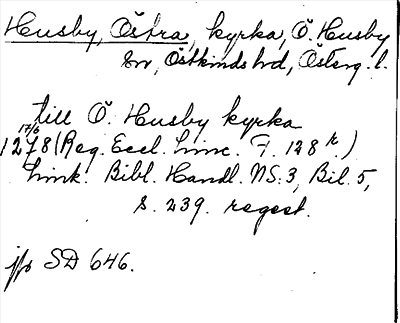 Husby, Östra, kyrka, Ö. Husby
sn, Östkinds hd, Österg. l.
till Ö. Husby kyrka
17/6
1278 (Reg. Eccl. Linc. F. 128 r)
Link. Bibl. Handl. NS. 3, Bil. 5,
s. 239. regest.
jfr SD 646.